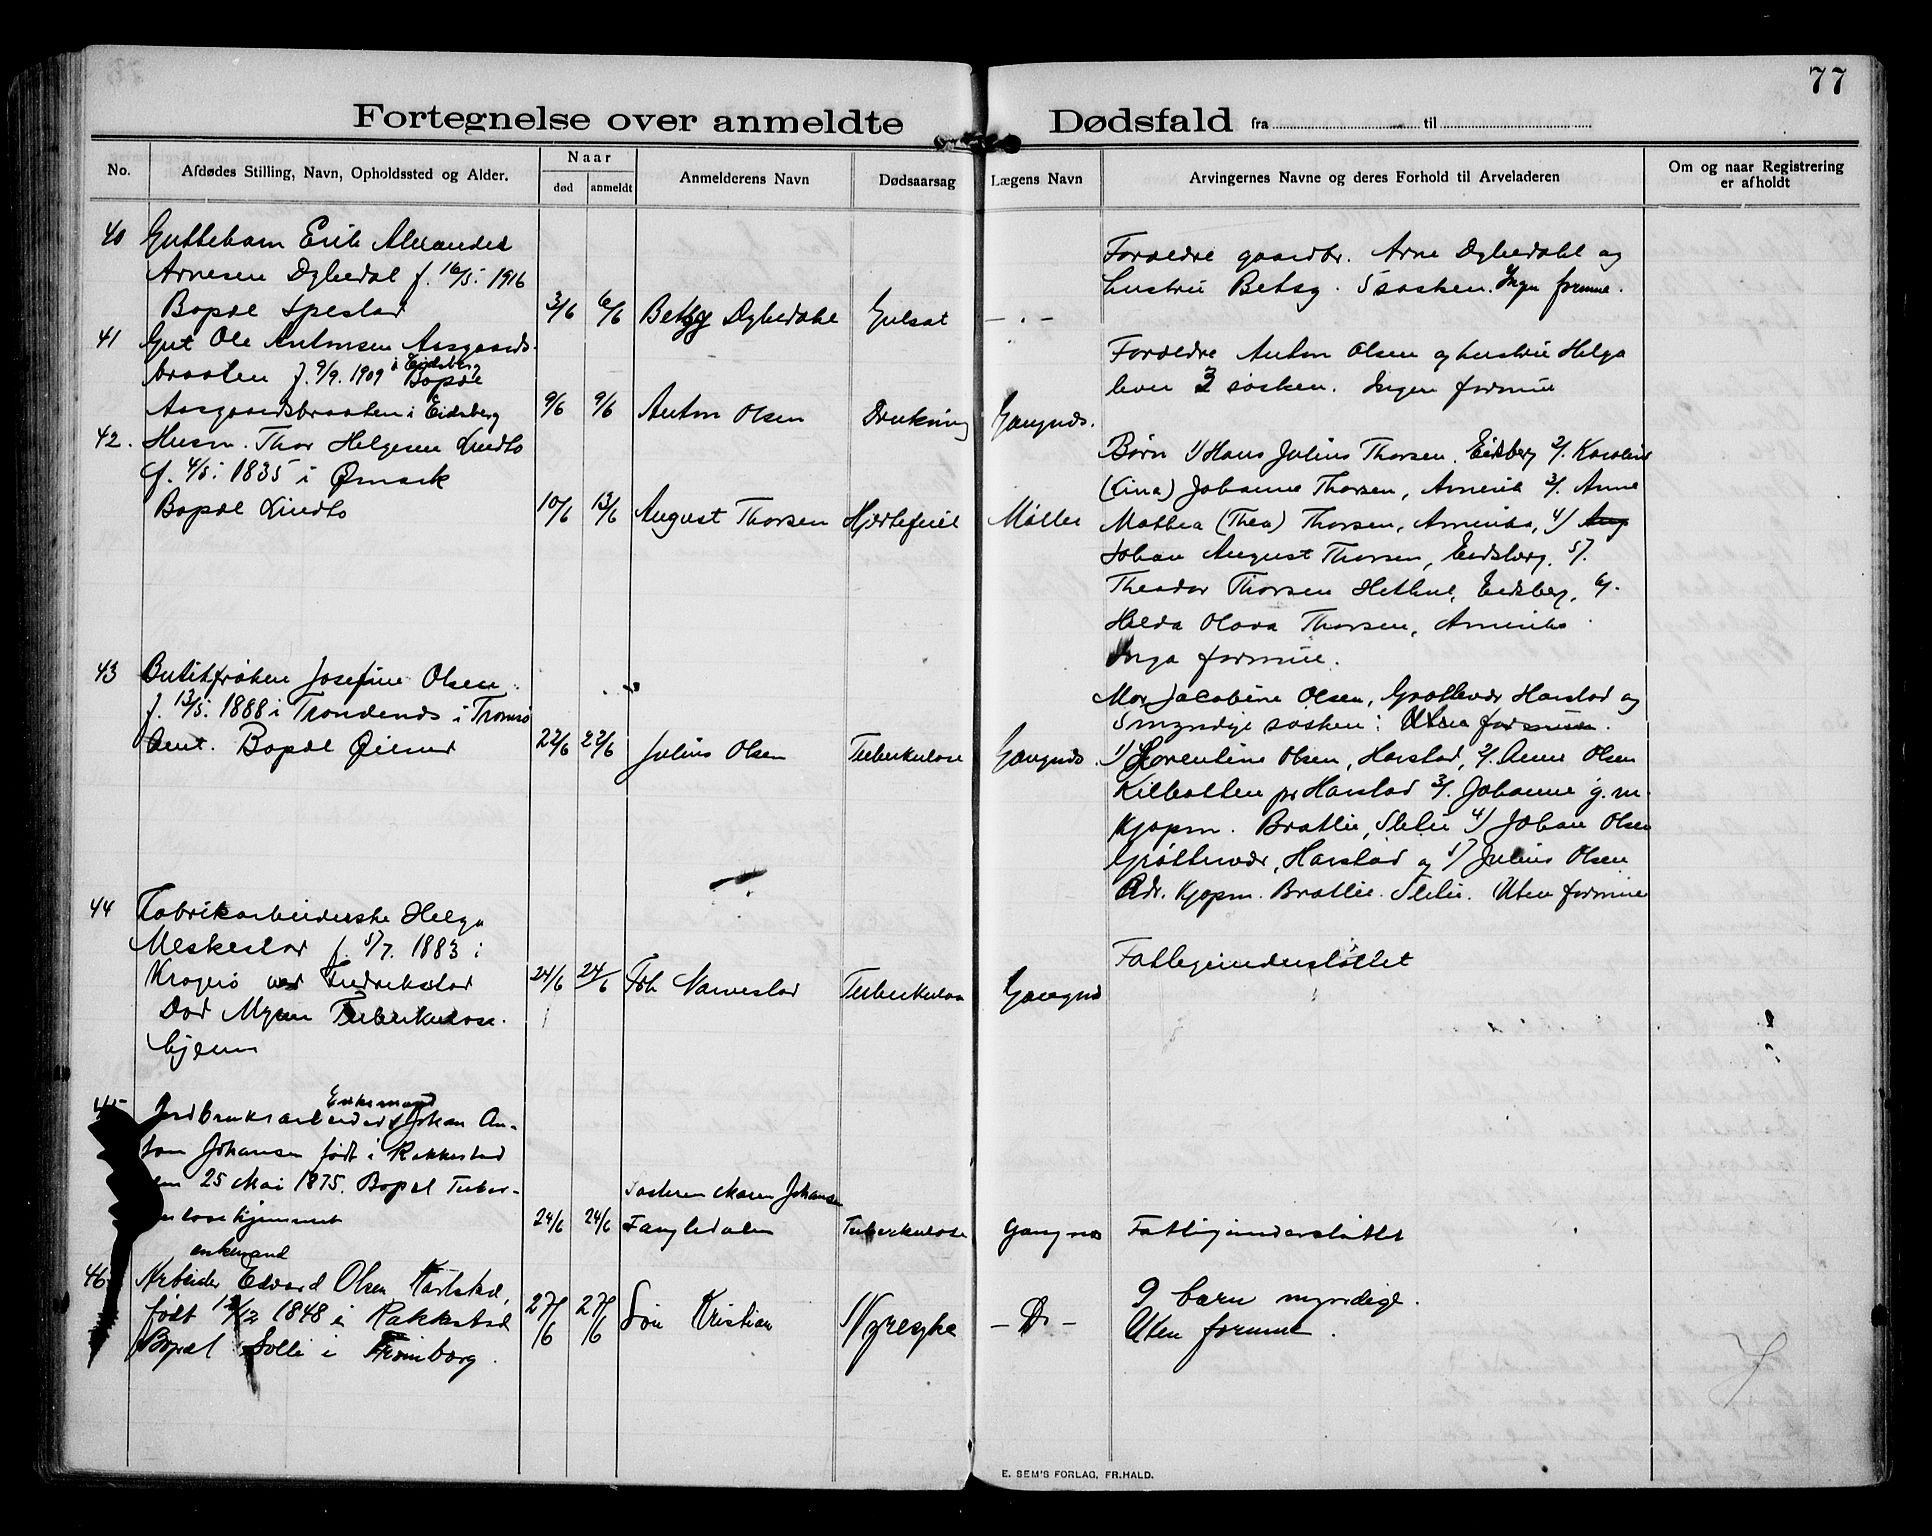 77
Fortegnelse over anmeldte Dødsfald fra til
No. Afdødes Stilling, Navn, Opholdssted og Alder. Naar død anmeldt Anmelderens Navn Dødsaarsag Lægens Navn Arvingernes Navne og deres Forhold til Arveladeren Om og naar Registrering er afholdt
40 Guttebarn Erik Alexander
Arnesen Dybedal f. 16/5. 1916
Bopæl Spestad 3/6 6/6 Betsy Dybedahl Gulsot — " —
Forældre gaardbr. Arne Dybedahl og
hustru Betsy. 5 søsken. Ingen formue.
41 Gut Ole Antonsen Aasgaards-
braaten f. 9/9. 1909 i Eidsberg Bopæl
Aasgaardsbraaten i Eidsberg 9/6 9/6 Anton Olsen Drukning Gangnæs.
Forældre Anton Olsen og hustru Helga
lever 3 søsken. Ingen formue
42. Husm. Thor Helgesen Lindto
f. 4/5. 1835 i Ømark
Bopæl Lindto 10/6 13/6 August Thorsen Hjertefeil Møller
Børn 1) Hans Julius Thorsen, Eidsberg 2). Karoline
(Lina) Johanne Thorsen, Amerika 3). Anne
Mathea (Thea) Thorsen, Amerika, 4) Aug
Johan August Thorsen, Eidsberg, 5).
Theodor Thorsen, Eidsberg, 6).
Hilda Olava Thorsen, Amerika.
Inga formue.
43 Butikfrøken Josefine Olsen
f. 13/5. 1888 i Trondenes i Tromsø
Amt. Bopæl 22/6 22/6 Julius Olsen Tuberkulose Gangnæs.
Mor Jacobine Olsen, Grøttevær Harstad og
5 myndige søsken: Uten formue.
1) Lorentine Olsen, Harstad, 2). Anne Olsen
Kilbotten pr Harstad 3). Johanne g. m.
Kjøpm. Brattlie, Slitu 4) Johan Olsen
Grøttevær, Harstad og 5) Julius Olsen
Adr. Kjøpm. Brattlie. Slitu. Uten formue
44 Fabrikarbeiderske Helga
Meskestad f. 5/7. 1883 i
Kragerø ved Fredrikstad
Død Mysen Tuberkulose-
hjem 24/6 24/6 Frk Narvestad Tuberkulose Gangnæs
Fattigunderstøttet
45 Jordbruksarbeider Enkemand Johan An-
ton Johansen født i Rakkestad
den 25 Mai 1875. Bopæl Tuber-
kulosehjemmet 24/6 24/6 Søsteren Maren Johansen
Tuberkulose Gangnæs Fattigunderstøttet
46 Arbeider enkemand Edvard Olsen Karlstad,
født 12/12 1848 i Rakkestad
Bopæl Solli i Trømborg. 27/6 27/6 Søn Kristian Nyresyke — Do —
9 barn myndige.
Uten formue.
E. SEM'S FORLAG, FR.HALD.